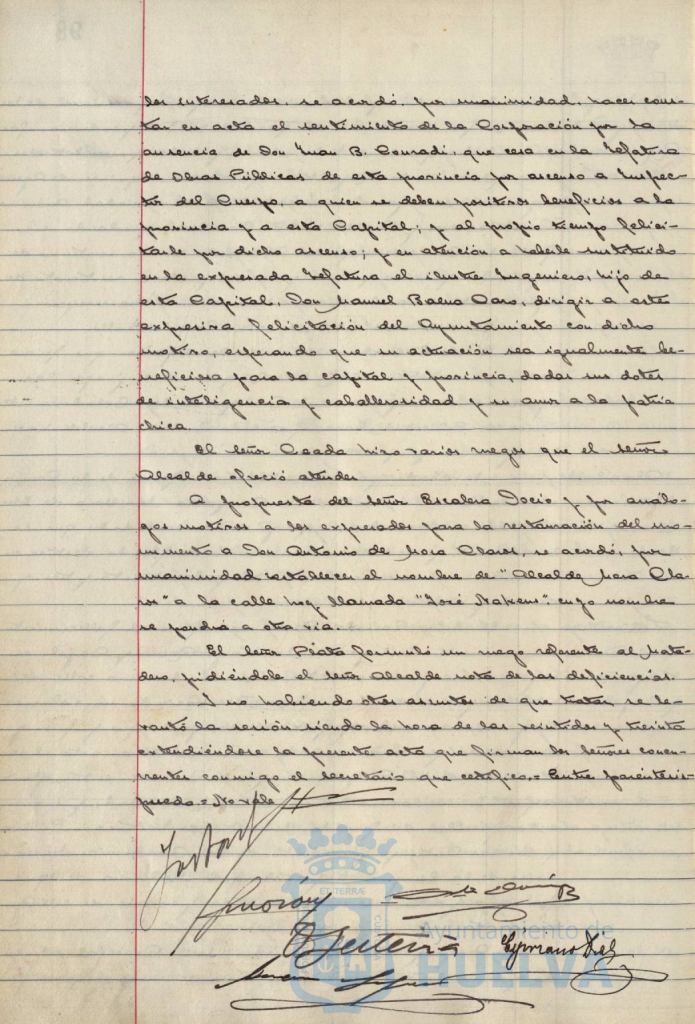 los interesados, se acordó, por unanimidad, hacer cons-
tar en acta el sentimiento de la Corporación por la
ausencia de Don Juan B. Conradi, que cesa en la Jefatura
de Obras Públicas de esta provincia por ascenso a Inspec-
tor del Cuerpo, a quien se deben positivos beneficios a la
provincia y a esta Capital; y al propio tiempo felici-
tarle por dicho ascenso; y en atención a haberle sustituido
en la expresada Jefatura el ilustre Ingeniero, hijo de
esta Capital, Don Manuel Baena Caro, dirigir a este
expresiva felicitación del Ayuntamiento con dicho
motivo, esperando que su actuación sea igualmente be-
neficiosa para la capital y provincia, dadas sus dotes
de inteligencia y caballerosidad y su amor a la patria
chica.
El Señor hizo varios ruegos que el Señor
Alcalde ofreció atender
A propuesta del Señor Escalera Docio y por análo-
gos motivos a los expresados para la restauración del mo-
numento a Don Antonio de Mora Claros, se acordó, por
unanimidad establecer el nombre de "Alcalde Mora Cla-
ros" a la calle hoy llamada "José Nakens", cuyo nombre
se pondrá a otra vía.
El Señor Plata formuló un ruego referente al Mata-
dero, pidiéndole el Señor Alcalde nota de las deficiencias.
Y no habiendo otros asuntos de que tratar se le-
vantó la sesión siendo la hora de las veintidos y treinta
extendiéndose la presente acta que firman los Señores concu-
rrentes conmigo el Secretario que certifico.= Entre paréntesis=
No vale
Cipriano
Ayuntamiento de
HUELVA